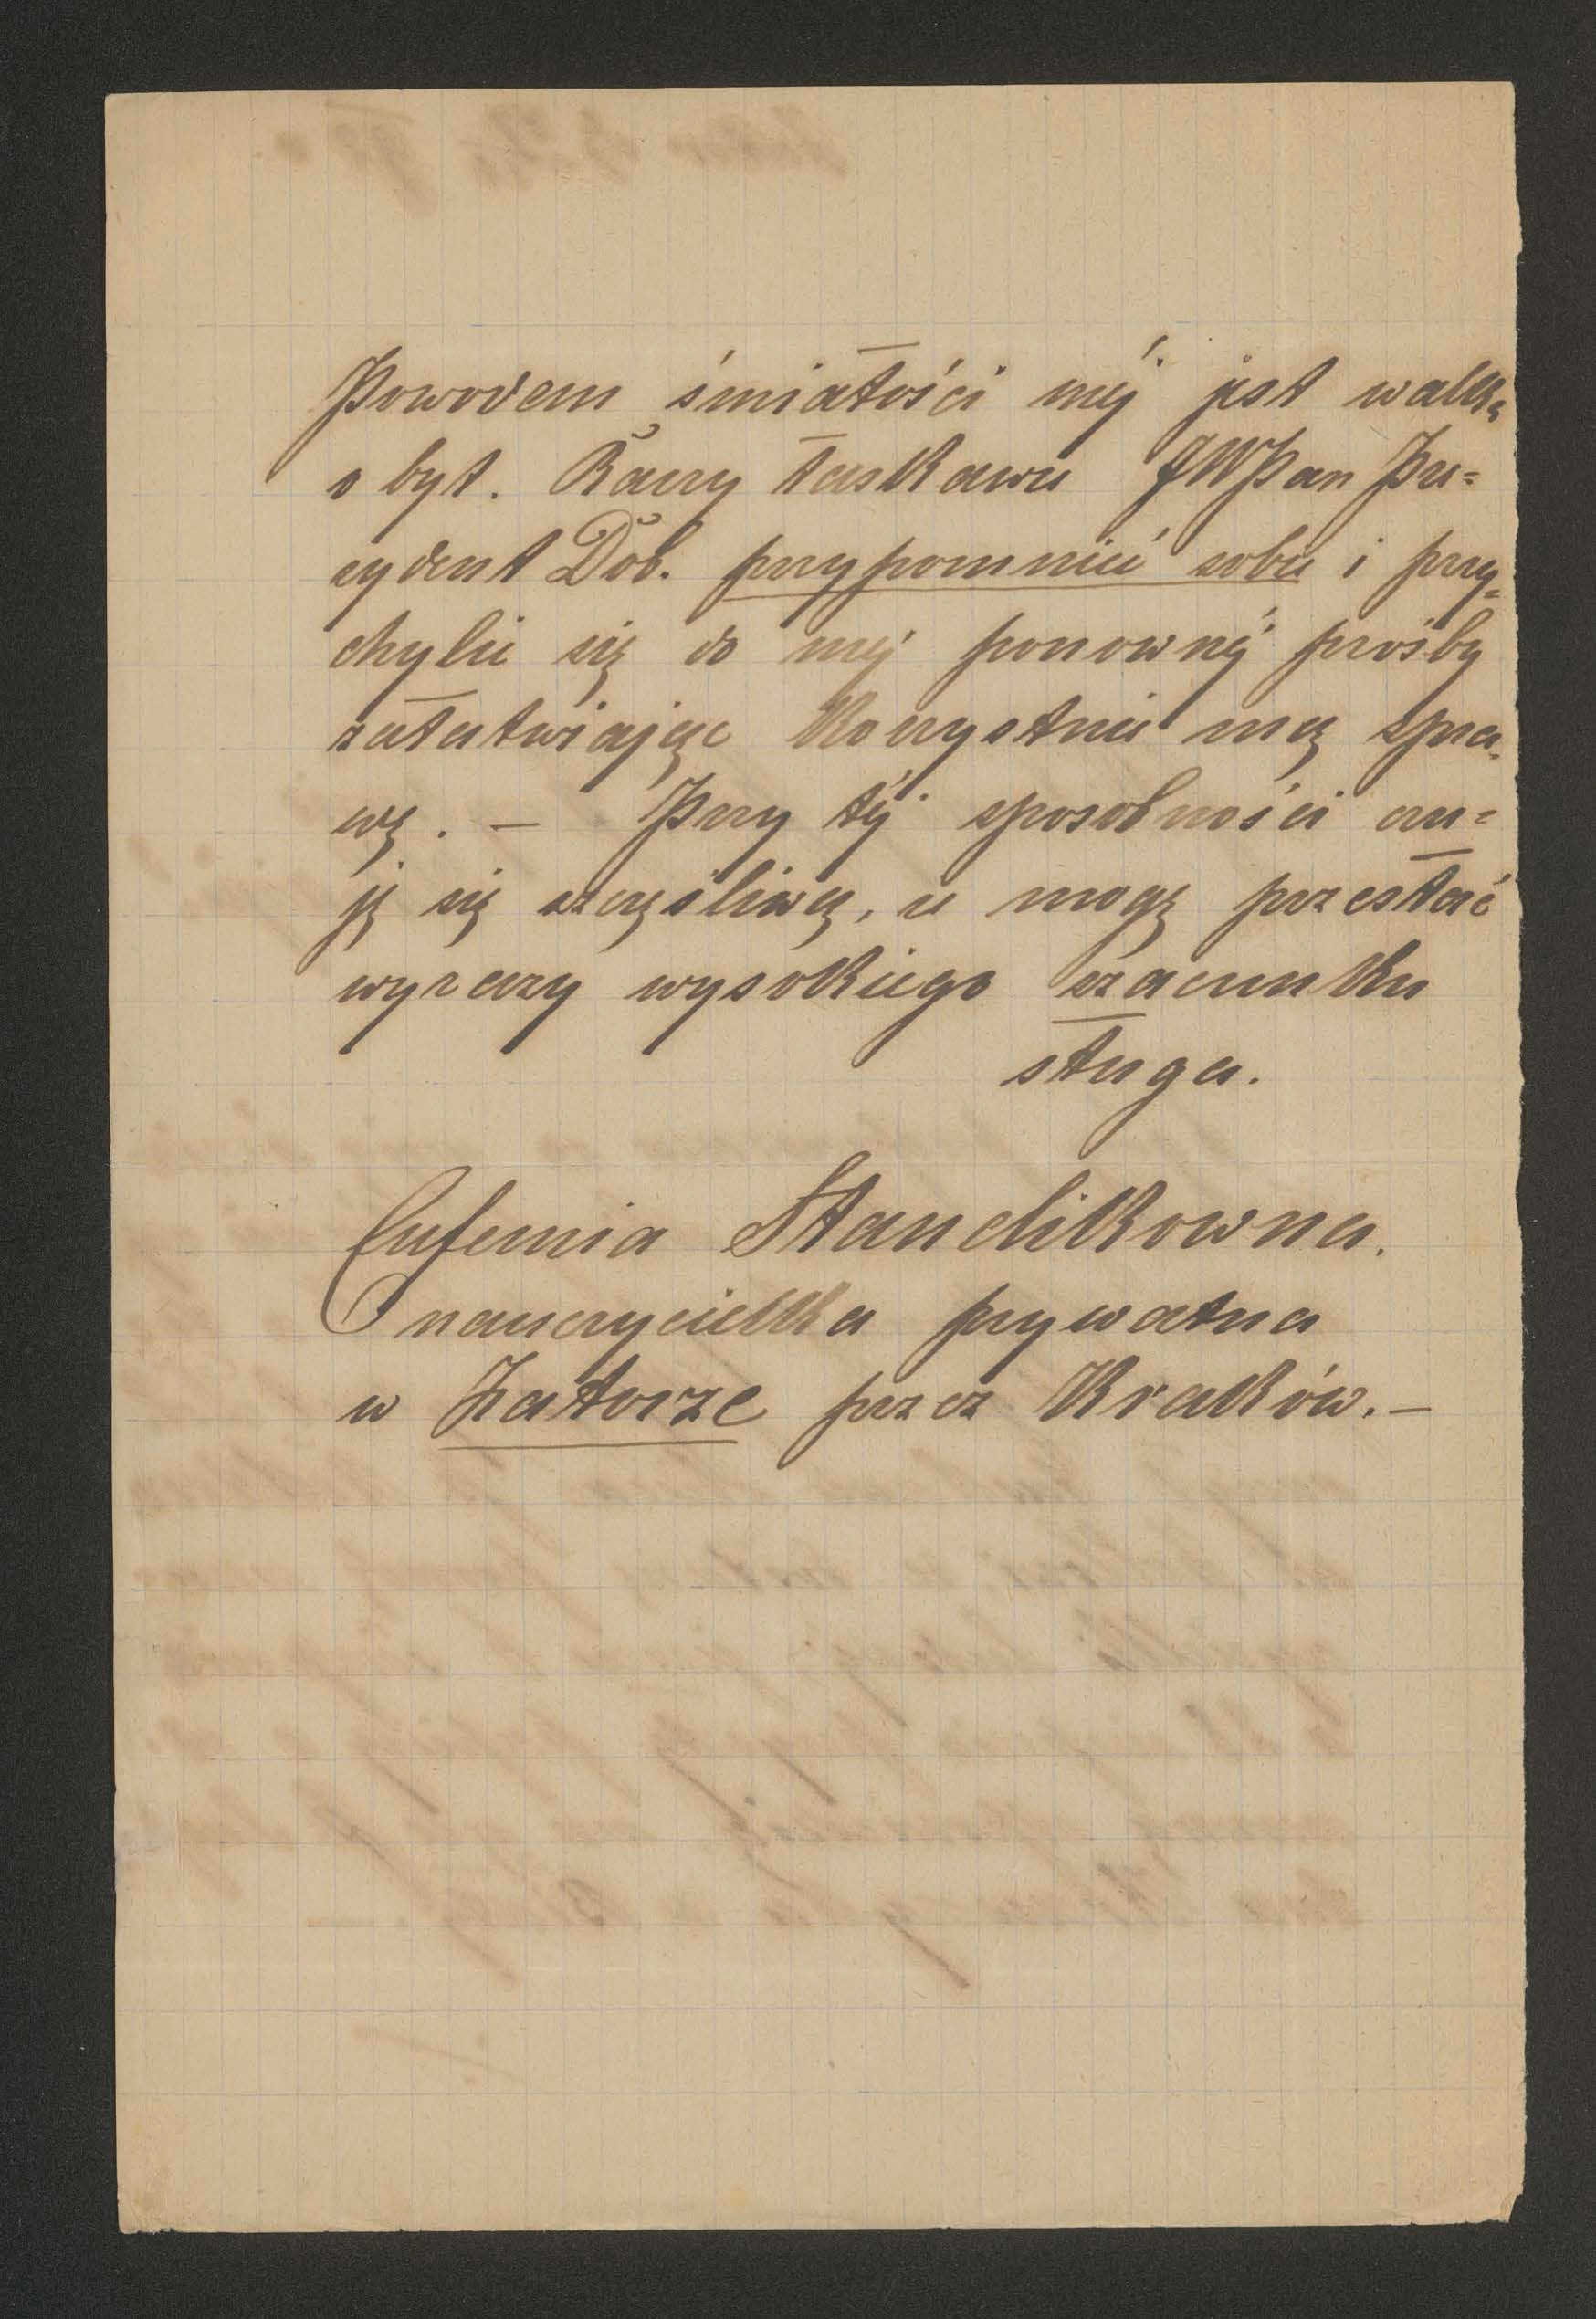 Powodem śmiałości mej jest walka
o byt. Raczy łaskawie JWPan Pre=
zydent Dob. przypomnieć sobie i przy=
chylić się do mej ponownej prośby
załatwiając korzystnie mą spra-
wę. – Przy tej sposobności czu=
ję się szczęśliwą, że mogę przesłać
wyrazy wysokiego szacunku
sługa.
Eufemia Standikowna.
nauczycielka prywatna
w Zatorze przez Kraków. –